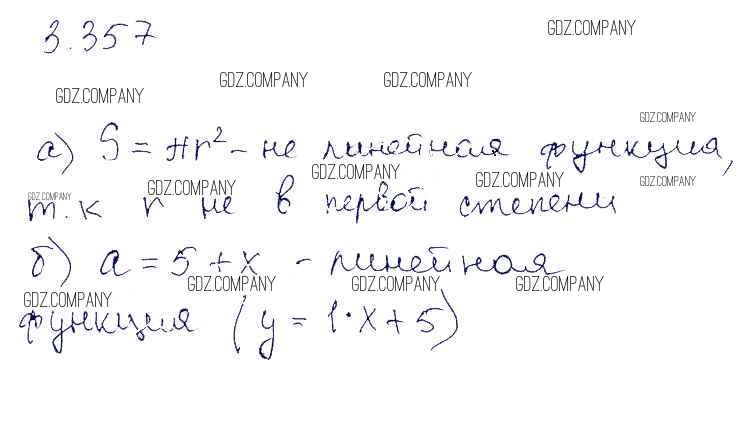 3.357
GDZ.COMPANY
GDZ.COMPANY GDZ.COMPANY
GDZ.COMPANY
GDZ.COMPANY
а) S = πr² - не линейная функция,
GDZ.COMPANY
GDZ.COMPANY GDZ.COMPANY GDZ.COMPANY
GDZ.COMPANY
т.к r не в первой степени
б) a = 5 + x - линейная
GDZ.COMPANY GDZ.COMPANY GDZ.COMPANY
GDZ.COMPANY
функция (y = 1·x + 5)